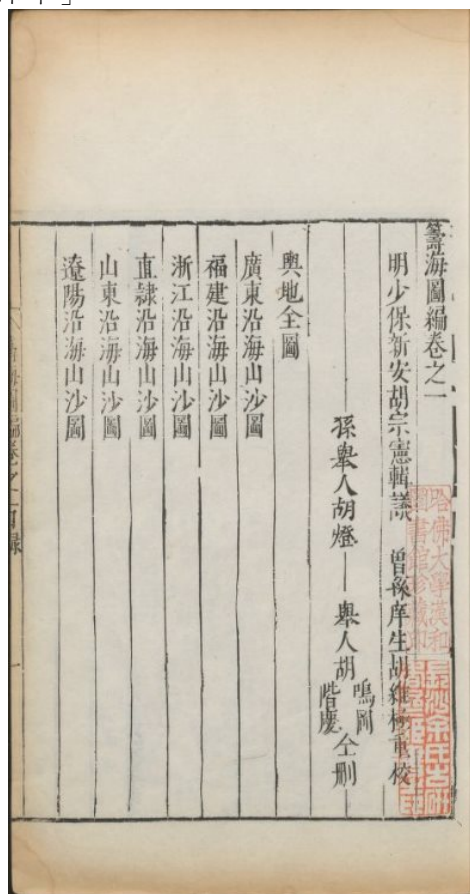 籌海圖編卷之一
明少保新安胡宗憲輯議 曾孫庠生胡維極重校
孫舉人胡燈 舉人胡鳴岡階慶仝刪
輿地全圖
廣東沿海山沙圖
福建沿海山沙圖
浙江沿海山沙圖
直隷沿海山沙圖
山東沿海山沙圖
遼陽沿海山沙圖
海圖編卷之一目錄 一
哈佛大學漢和
圖書館珍藏印